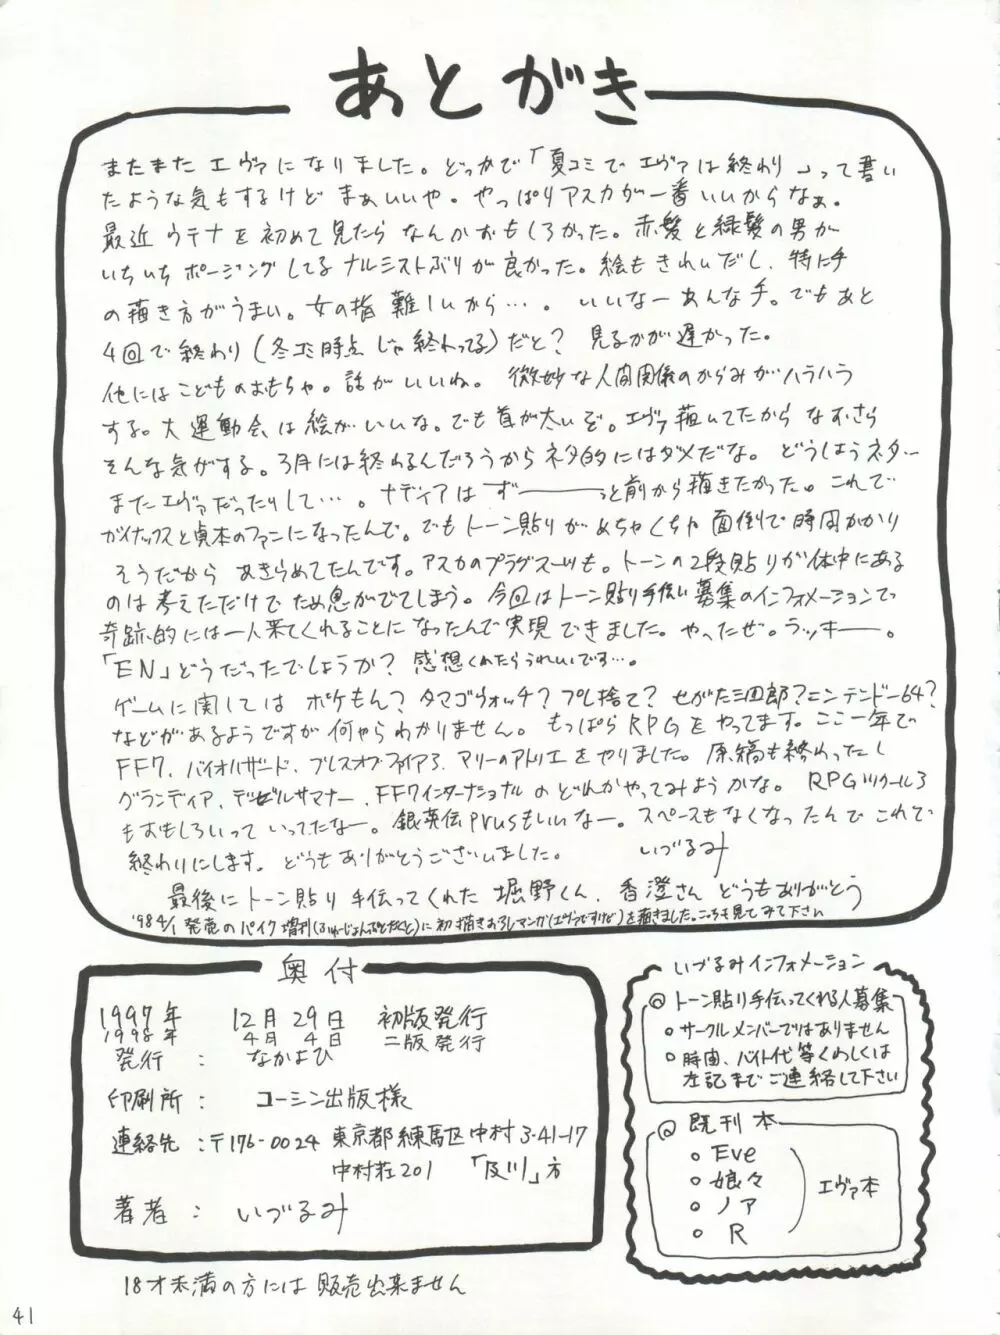 あとがき
またまたエヴァになりました。どっかで「夏コミでエヴァは終わり」って書い
たような気もするけどまぁいいや。やっぱりアスカが一番いいからなぁ。
最近ウテナを初めて見たらなんかおもしろかった。赤髪と緑髪の男が
いちいちポージングしてるナルシストぶりが良かった。絵もきれいだし、特に手
の描き方がうまい。女の指難しいから…。いいなーあんな手。でもあと
4回で終わり(冬コミ時点じゃ終わってる)だと?見るのが遅かった。
他にはこどものおもちゃ。話がいいね。微妙な人間関係のからみがハラハラ
する。大運動会は絵がいいな。でも首が太いぞ。エヴァ描いてたからなおさら
そんな気がする。3月には終わるんだろうからネタ的にはダメだな。どうしようネタ…
またエヴァだったりして…。ナディアはず―――っと前から描きたかった。これで
ガイナックスと貞本のファンになったんで。でもトーン貼りがめちゃくちゃ面倒で時間かかり
そうだからあきらめてたんです。アスカのプラグスーツも。トーンの2段貼りが体中にある
のは考えただけでため息がでてしまう。今回はトーン貼り手伝い募集のインフォメーションで
奇跡的には一人来てくれることになったんで実現できました。やったぜ。ラッキー。
「EN」どうだったでしょうか?感想くれたらうれしいです…。
ゲームに関してはポケもん?タマゴウォッチ?プレ捨て?せがた三四郎?ニンテンドー64?
などがあるようですが何やらわかりません。もっぱらRPGをやってます。ここ一年で
FF7、バイオハザード、ブレスオブファイア3、マリーのアトリエをやりました。原稿も終わったし
グランディア、デビルサマナー、FF7インターナショナルのどれかやってみようかな。RPGツクール3
もおもしろいっていってたなー。銀英伝prusもいいなー。スペースもなくなったんでこれで
終わりにします。どうもありがとうございました。 いづるみ
最後にトーン貼り手伝ってくれた堀野くん、香澄さんどうもありがとう
'98 4/1発売のパイク増刊(ふゅーじょんぷろだくと)に初描きおろしマンガ(エヴァですけど)を描きました。こっちも見てみて下さい
奥付
1997年 12月29日 初版発行
1998年 4月4日 二版発行
発行: なかよひ
印刷所: コーシン出版様
連絡先:〒176-0024 東京都練馬区中村3-41-17
中村荘201 「及川」方
著者: いづるみ
18才未満の方には販売出来ません
いづるみインフォメーション
◎トーン貼り手伝ってくれる人募集
○サークルメンバーではありません
○時間、バイト代等くわしくは
左記までご連絡して下さい
◎既刊本
○Eve
○娘々
○ノア
○R
エヴァ本
41